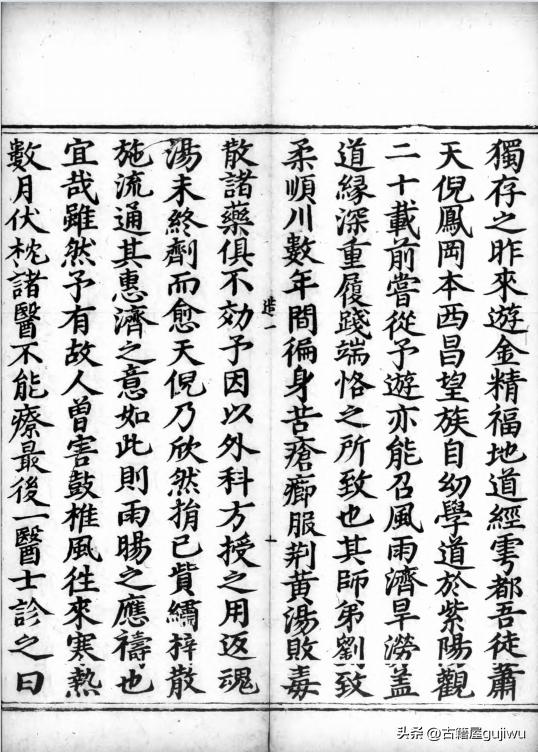 獨存之昨來遊金精福地道經雩都吾徒蕭
天倪鳳岡本西昌望族自幼學道於紫陽觀
二十載前嘗從予遊亦能召風雨濟旱澇蓋
道緣深重履踐端恪之所致也其師弟劉致
柔順川數年間徧身苦瘡癤服荆黃湯敗毒
散諸藥俱不効予因以外科方授之用返魂
湯未終劑而愈天倪乃欣然捐已貲繡梓散
施流通其惠濟之意如此則雨暘之應禱也
宜哉雖然予有故人曾害鼓椎風往來寒熱
數月伏枕諸醫不能療最後一醫士診之曰
头条 @古籍屋gujiwu